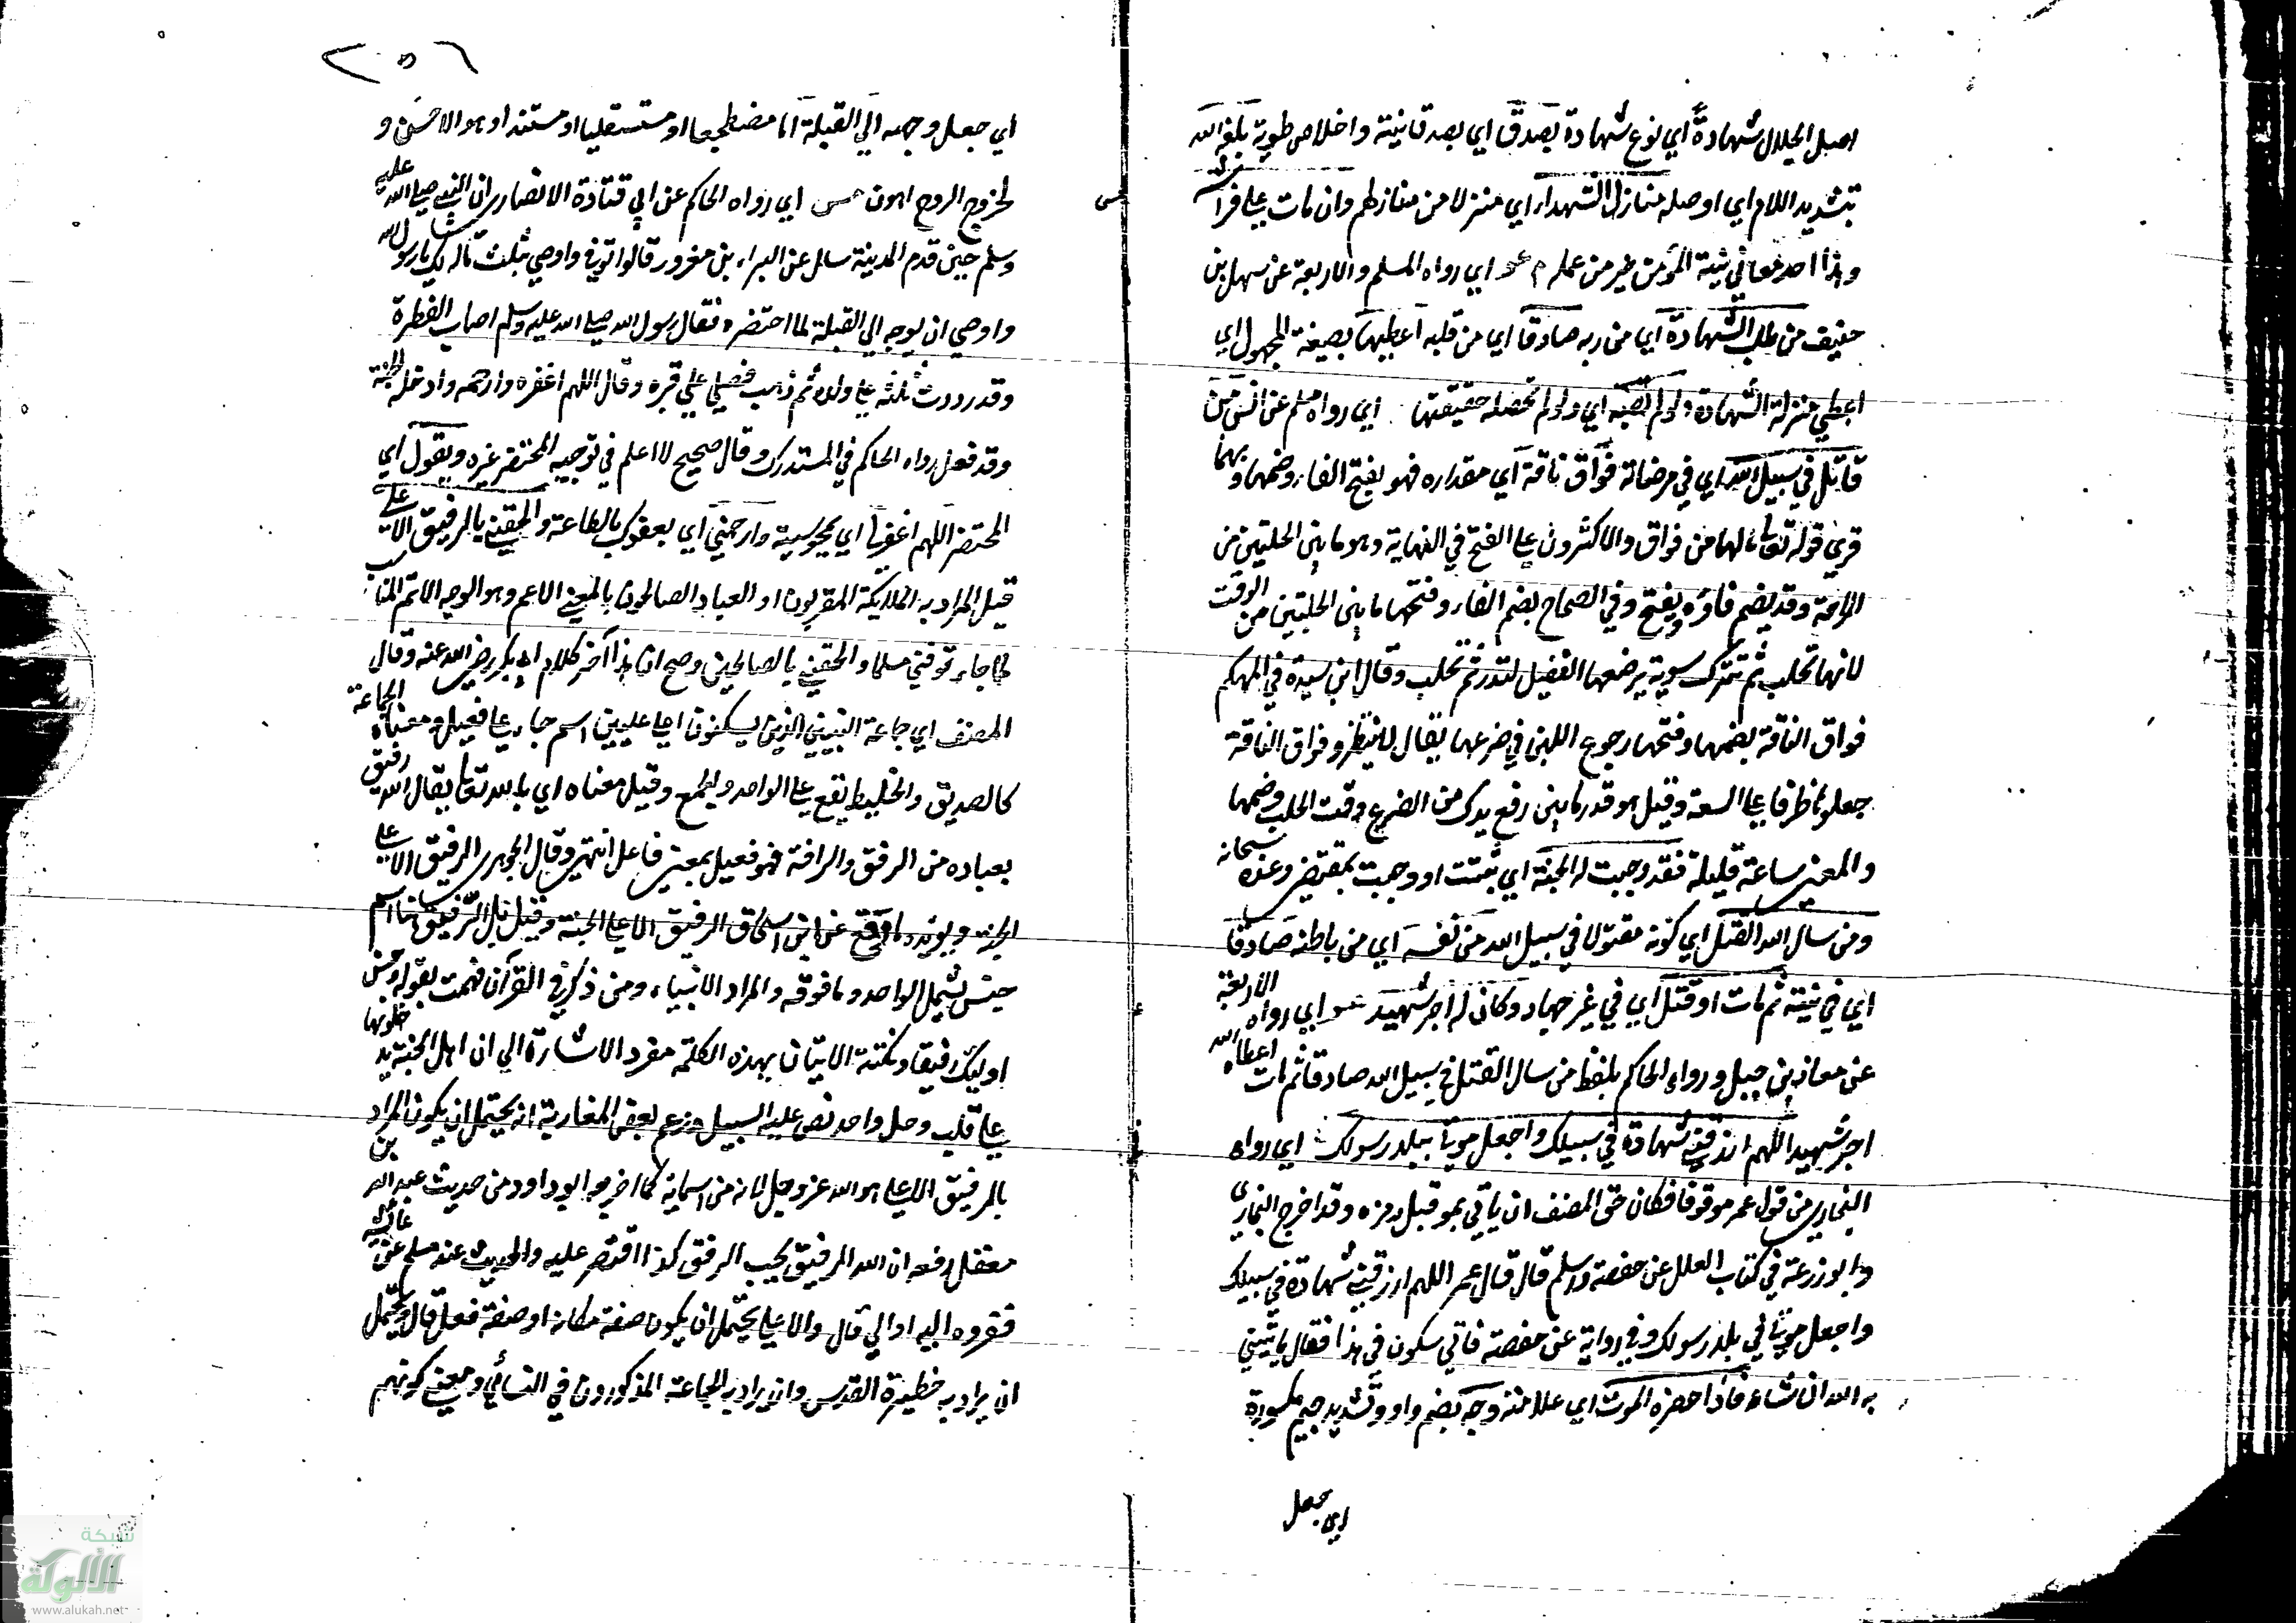 اصل الحلال شهادة أي نوع شهادة بصدق اي بصدق نية واخلاص طوية بلغه الله
بتشديد اللام اي اوصله منازل الشهداء اي منزلا من منازلهم وان مات على فراشه
وهذا احد معاني نية المؤمن خير من عمله م عو اي رواه المسلم والاربعة عن سهل بن
حنيف من طلب الشهادة اي من ربه صادقا اي من قلبه اعطيها بصيغة المجهول اي
اعطي منزلة الشهادة ولو لم تصبه اي ولو لم تحصل له حقيقتها اي رواه مسلم عن انس من
قاتل في سبيل الله اي في مرضاته فواق ناقة اي مقداره فهو بفتح الفاء وضمها وبهما
قرئ قوله تعالى ما لها من فواق والاكثرون على الفتح في النهاية وهو ما بين الحلبتين من
الراحة وقد يضم فاؤه ويفتح وفي الصحاح بضم الفاء وفتحها ما بين الحلبتين من الوقت
لانها تحلب ثم تترك سويعة يرضعها الفصيل لتدر ثم تحلب وقال ابن سيده في المحكم
فواق الناقة بضمها وفتحها رجوع اللبن في ضرعها يقال لا ينتظره فواق الناقة
جعلوه ظرفا على السعة وقيل هو قدر ما بين رفع يدك من الضرع وقت الحلب وضمها
والمعنى ساعة قليلة فقد وجبت له الجنة اي ثبتت او وجبت بمقتضى وعده سبحانه
ومن سال الله القتل اي كونه مقتولا في سبيل الله من نفسه اي من باطنه صادقا
اي في نيته ثم مات او قتل اي في غير جهاد وكان له اجر شهيد عو اي رواه الاربعة
عن معاذ بن جبل ورواه الحاكم بلفظ من سال القتل في سبيل الله صادقا ثم مات اعطاه الله
اجر شهيد اللهم ارزقني شهادة في سبيلك واجعل موتي ببلد رسولك اي رواه
البخاري من قول عمر موقوفا فكان حق المصنف ان يأتي بمو قبل رمزه وقد اخرج البخاري
وابو زرعة في كتاب العلل عن حفصة واسلم قال قال عمر اللهم ارزقني شهادة في سبيلك
واجعل موتي في بلد رسولك وفي رواية عن حفصة فاني سكون في هذا فقال يأتيني
به الله ان شاء فاذا حضره الموت اي علامته وجه بضم واو وتشديد جيم مكسورة
اي جعل
٢٥٦
اي جعل وجهه الي القبلة اما مضطجعا او مستلقيا او مستندا وهو الاحسن و
لخروج الروح اهون مس اي رواه الحاكم عن ابي قتادة الانصاري ان النبي صلى الله عليه
وسلم حين قدم المدينة سال عن البراء بن معرور قالوا توفي واوصي بثلث ماله لك يا رسول الله
واوصي ان يوجه الي القبلة لما احتضر فقال رسول الله صلى الله عليه وسلم اصاب الفطرة
وقد رددت ثلثه على ولده ثم ذهب فصلي علي قبره وقال اللهم اغفر له وارحمه وادخله الجنة
وقد فعل رواه الحاكم في المستدرك وقال صحيح لا اعلم في توجيه المحتضر غيره ويقول اي
المحتضر اللهم اغفر لي اي وارحمني اي بعفوك بالطاعة والحقني بالرفيق الاعلى
قيل المراد به الملايكة المقربون او العباد الصالحون بالمعني الاعم وهو الوجه الاتم المناسب
لما جاء توفني مسلما والحقني بالصالحين وصح ان هذا آخر كلام ابي بكر رضي الله عنه وقال
المصنف اي جماعة النبيين الذين يسكنون اعلى عليين اسم جاء على فعيل ومعناه الجماعة
كالصديق والخليط يقع على الواحد والجمع وقيل معناه اي بالله تعالى يقال الله رفيق
بعباده من الرفق والرافة فهو فعيل بمعنى فاعل انتهى وقال الجوهري الرفيق الاعلى
الجنة ويؤيده ما وقع عن ابن اسحاق الرفيق الاعلى الجنة وقيل بل الرفيق هنا اسم
جنس يشمل الواحد وما فوقه والمراد الانبياء ومن ذكر في القرآن ختمت بقوله وحسن
اوليك رفيقا ونكتة الاتيان بهذه الكلمة مفرد الاشارة الي ان اهل الجنة يدخلونها
على قلب رجل واحد نص عليه السهيلي وزعم بعض المغاربة انه يحتمل ان يكون المراد
بالرفيق الاعلى هو الله عز وجل لانه من اسمايه كما اخرجه ابو داود من حديث عبد الله بن
مغفل رفعه ان الله الرفيق يحب الرفق كذا اقتصر عليه والحديث عند مسلم عن عائشة
فعزوه اليه اولي قال والاعلى يحتمل ان يكون صفة مكانه او صفة فعل قال ويحتمل
ان يراد به حظيرة القدس وان يراد به الجماعة المذكورون في النسائي ومعني كونهم
شبكة
الألوكة
www.alukah.net